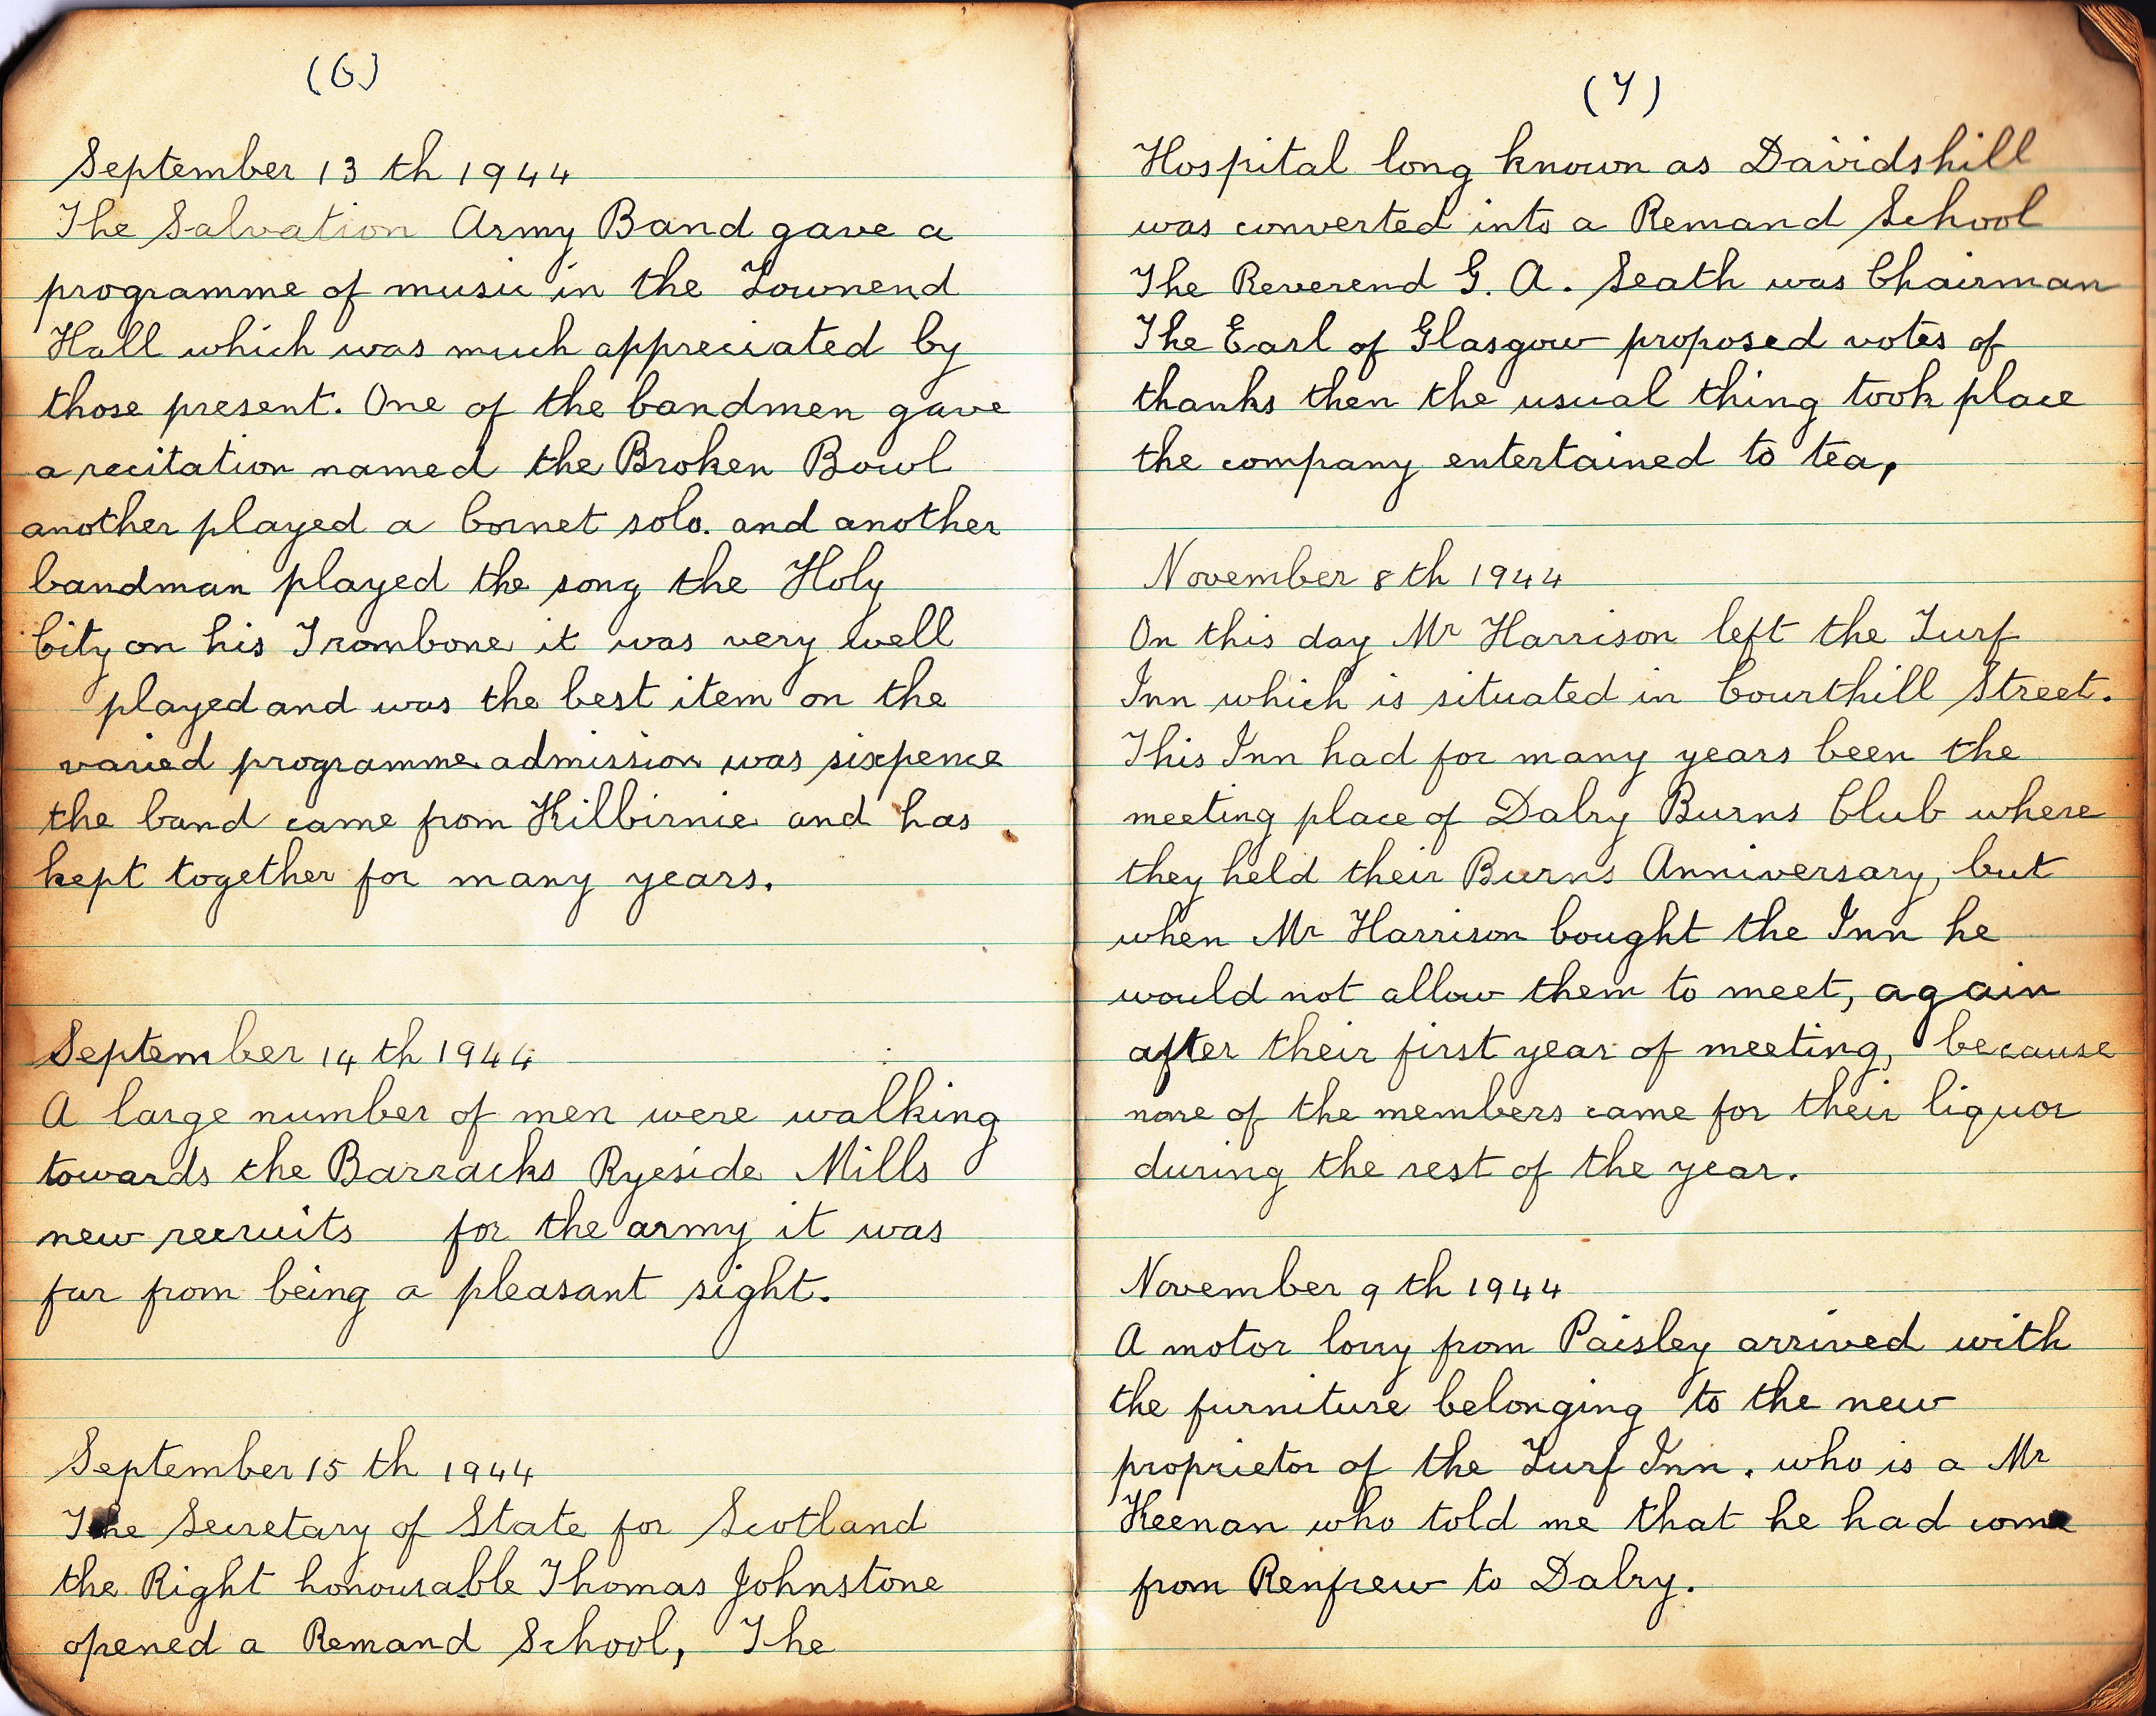 (6)
September 13 th 1944
The Salvation Army Band gave a
programme of music in the Townend
Hall which was much appreciated by
those present. One of the bandmen gave
a recitation named the Broken Bowl
another played a Cornet solo. and another
bandman played the song the Holy
City on his Trombone it was very well
played and was the best item on the
varied programme admission was sixpence
the band came from Kilbirnie and has
kept together for many years.
September 14 th 1944
A large number of men were walking
towards the Barracks Ryeside Mills
new recruits for the army it was
far from being a pleasant sight.
September 15 th 1944
The Secretary of State for Scotland
the Right honourable Thomas Johnstone
opened a Remand School, The
(7)
Hospital long known as Davidshill
was converted into a Remand School
The Reverend G. A. Seath was Chairman
The Earl of Glasgow proposed votes of
thanks then the usual thing took place
the company entertained to tea,
November 8 th 1944
On this day Mr Harrison left the Turf
Inn which is situated in Courthill Street.
This Inn had for many years been the
meeting place of Dalry Burns Club where
they held their Burns Anniversary, but
when Mr Harrison bought the Inn he
would not allow them to meet, again
after their first year of meeting, because
none of the members came for their liquor
during the rest of the year.
November 9 th 1944
A motor lorry from Paisley arrived with
the furniture belonging to the new
proprietor of the Turf Inn. who is a Mr
Keenan who told me that he had come
from Renfrew to Dalry.